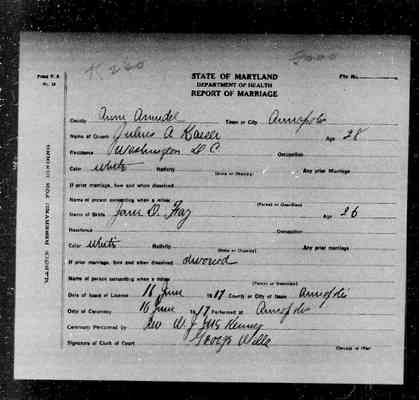 K 260
5000
Form V. S.
STATE OF MARYLAND
DEPARTMENT OF HEALTH
REPORT OF MARRIAGE
File No.
County Ann Arundel Town or City Annapolis
Name of Groom Julius A Kaiser Age 28
Residence Washington D C Occupation
Color white Nativity (State or Country) Any prior Marriage
If prior marriage, how and when dissolved
Name of person consenting when a minor (Parent or Guardian)
Name of Bride Jane D. Fay Age 26
Residence Occupation
Color white Nativity (State or Country) Any prior marriage
If prior marriage, how and when dissolved divorced
Name of person consenting when a minor (Parent or Guardian)
Date of Issue of License 16 June 1917 County or City of Issue Annapolis
Date of Ceremony 16 June 1917 Performed at Annapolis
Ceremony Performed by Rev W. J. McKenney
Signature of Clerk of Court George Wells
MARGIN RESERVED FOR BINDING